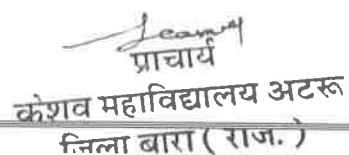 प्राचार्य
केशव महाविद्यालय अटरू
जिला बारा ( राज. )